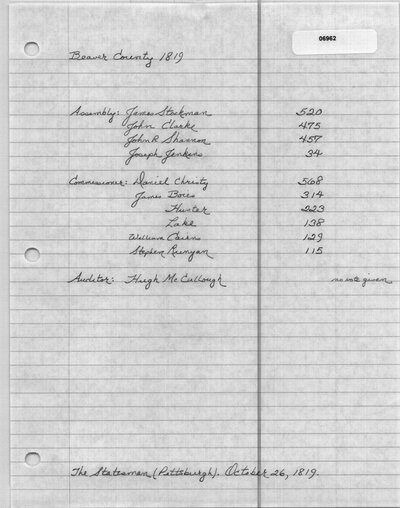 06962
Beaver County 1819
Assembly: James Stockman 520
John Clarke 475
John R Shannon 457
Joseph Jenkins 34
Commissioner: Daniel Christy 568
James 314
Hunter 223
Lake 138
William Cairns 129
Stephen Runyan 115
Auditor: Hugh McCullough no vote given
The Statesman (Pittsburgh). October 26, 1819.